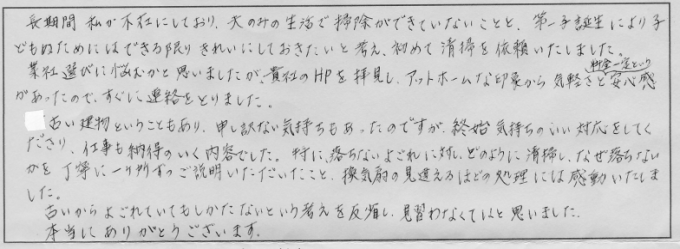 長期間 私が不在にしており、夫のみの生活で掃除ができていないことと、第一子誕生により子
どものためにはできる限りきれいにしておきたいと考え、初めて清掃を依頼いたしました。
業社選びに悩むかと思いましたが、貴社のHPを拝見し、アットホームな印象から気軽さと料金一定という安心感
があったので、すぐに連絡をとりました。
古い建物ということもあり、申し訳ない気持ちもあったのですが、終始気持ちのいい対応をしてく
ださり、仕事も納得のいく内容でした。特に、落ちないよごれに対し、どのように清掃し、なぜ落ちない
かを丁寧に一ヶ所ずつご説明いただいたこと、換気扇の見違えるほどの処理には感動いたしま
した。
古いからよごれていてもしかたないという考えを反省し、見習わなくてはと思いました。
本当にありがとうございます。